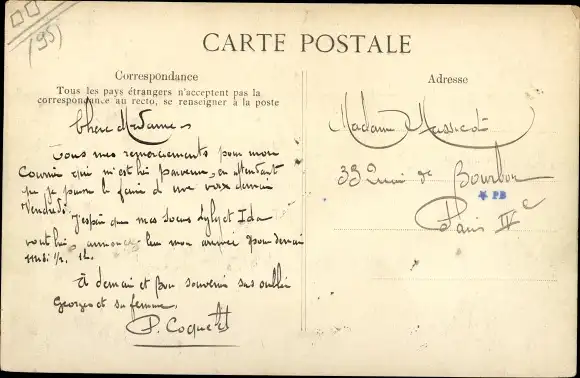 (95)
CARTE POSTALE
Correspondance
Tous les pays étrangers n'acceptent pas la
correspondance au recto, se renseigner à la poste
Adresse
Chère Madame
Tous mes remerciements pour mon
Courrier qui m'est bien parvenu, en attendant
que je puisse le faire de vive voix demain
Vendredi.
J'espère que mes soeurs Lyly et Ida
vont bien, annoncez leur mon arrivée pour demain
midi 1/2
A demain et bon souvenir sans oublier
Georges et sa femme.
P. Coquelet
Madame Massicot
33 Quai de Bourbon
PB
Paris IVe